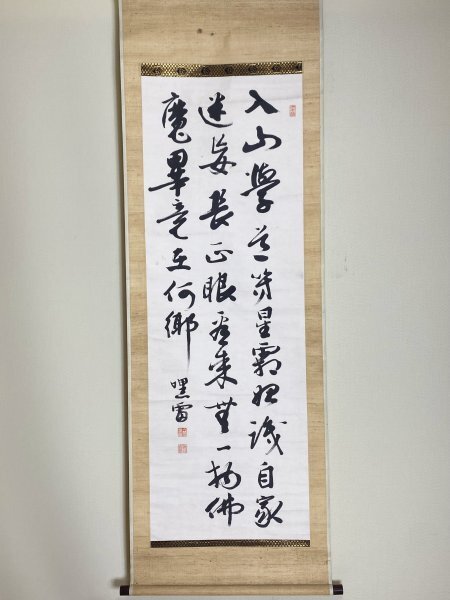 入山學道幾星霜始識自家
迷妄長正眼看来無一物佛
魔畢竟在何郷
嘿雷